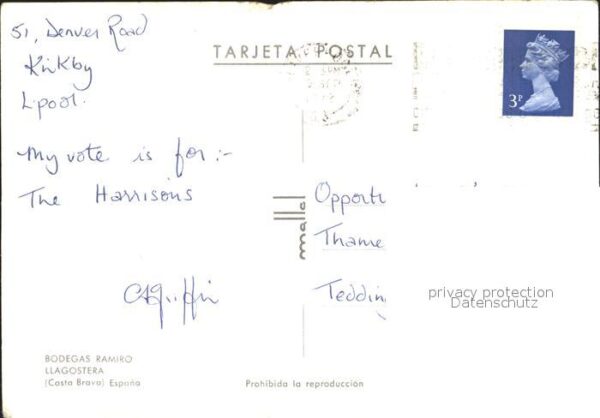 51, Denver Road
Kirkby
L'pool.
My vote is for :-
The Harrisons
TARJETA POSTAL
3P
mallal
Opportu
Thame
Teddin
privacy protection
Datenschutz
BODEGAS RAMIRO
LLAGOSTERA
(Costa Brava) España
Prohibida la reproducción